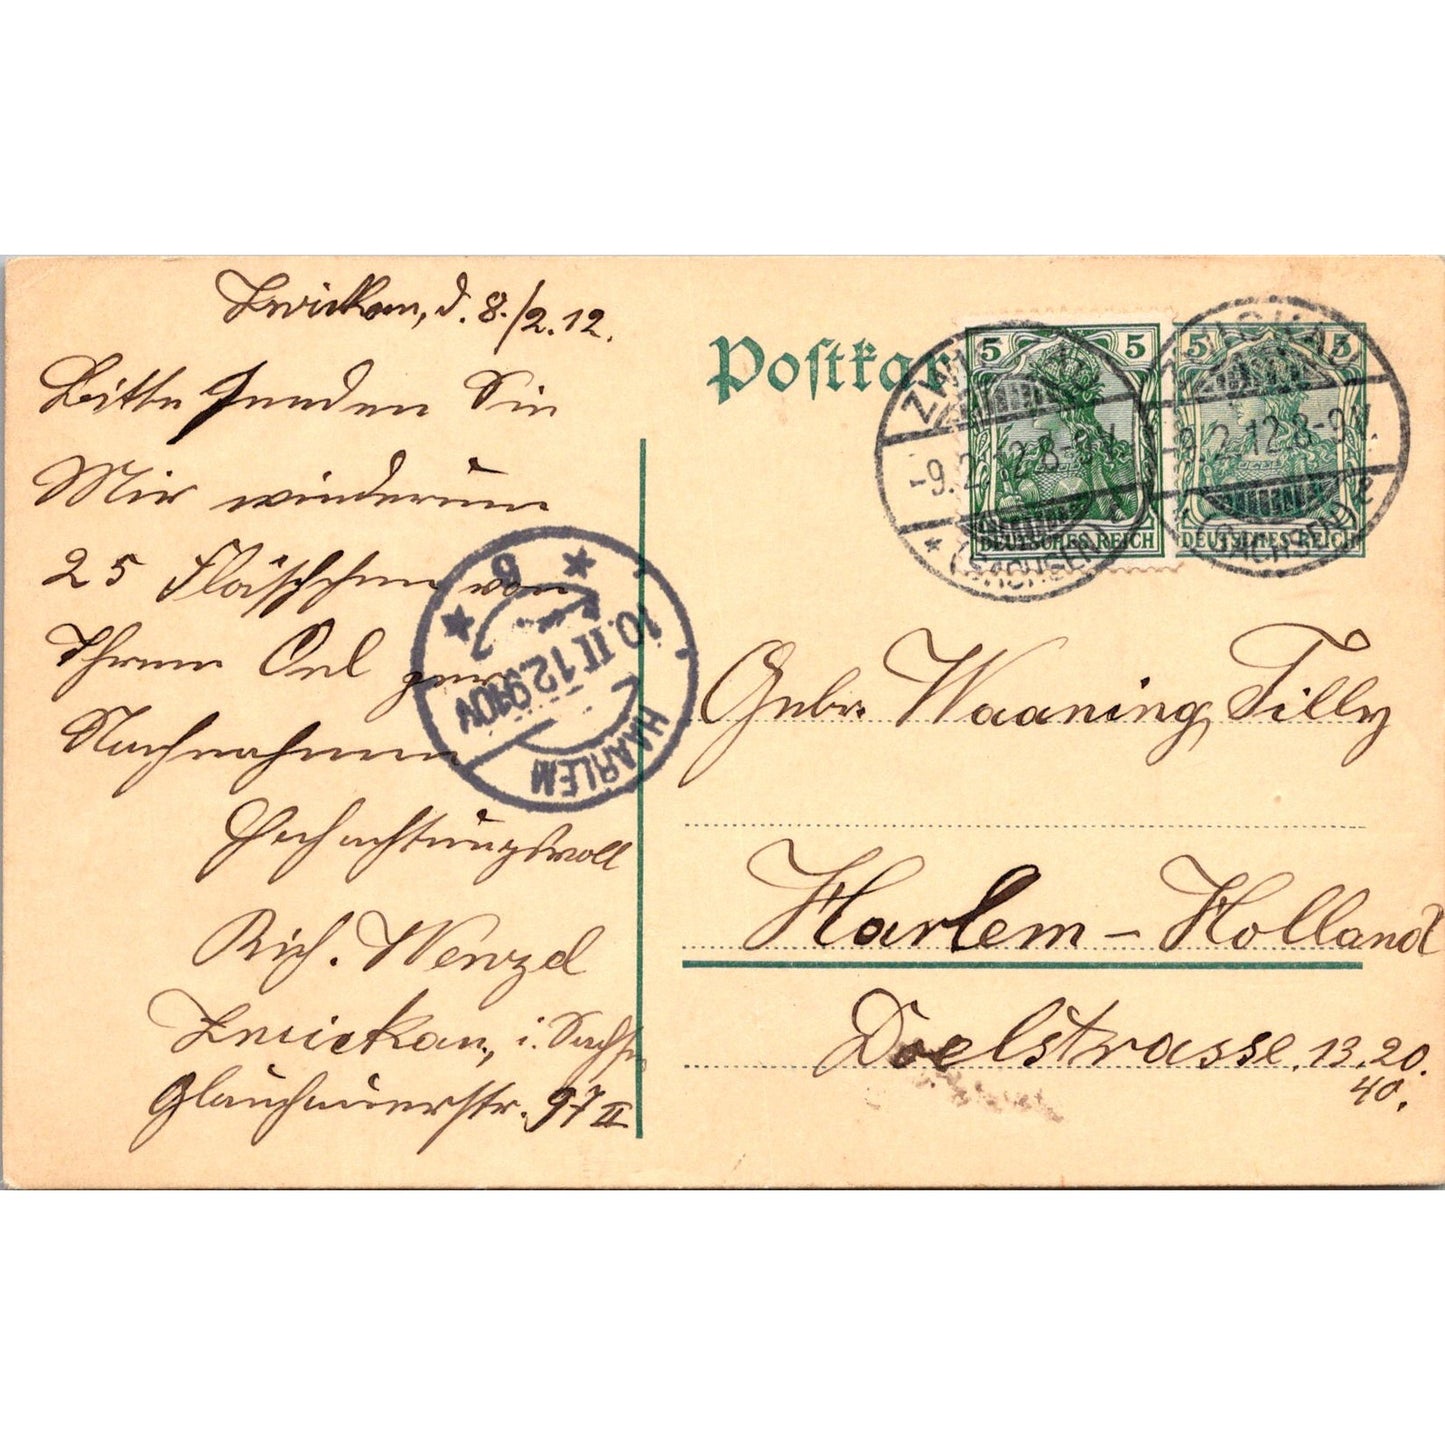 Zwickau, d. 8./2.12.
Bitte senden Sie
Mir wiederum
25 Fläschchen von
Ihrem Oel per
Nachnahme
Hochachtungsvoll
Rich. Wenzel
Zwickau, i. Sachsen
Glauchauerstr. 97 II
Postkar
5 5
DEUTSCHES REICH
5 5
DEUTSCHES REICH
ZWICKAU
-9.2.12.8-9V.
* (SACHSEN) 2
ZWICKAU
-9.2.12.8-9V.
* (SACHSEN) 2
HAARLEM
10.II.12.9-10V
6
Gebr. Waaning Tilly
Harlem – Holland
Doelstrasse. 13.20.
40.